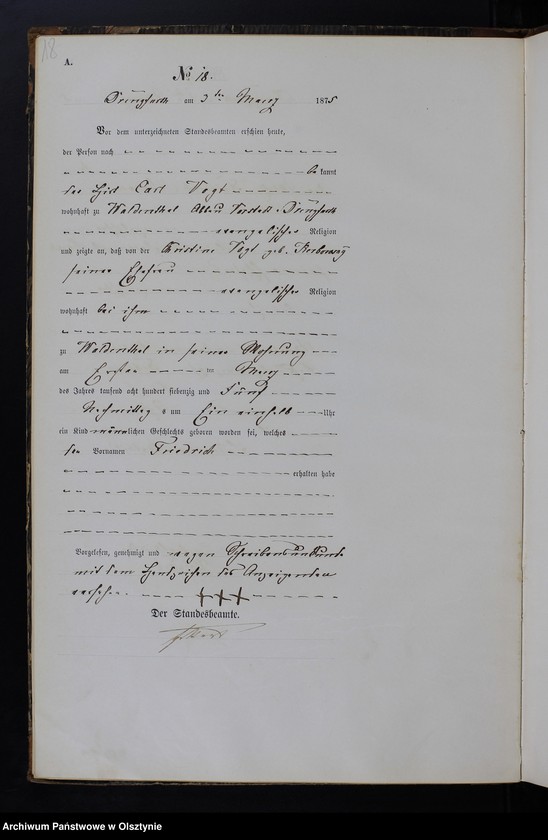 18
A.
No 18.
am 3ten März 1875
Vor dem unterzeichneten Standesbeamten erschien heute,
der Person nach
be kannt
der Hirt Carl Vogt
wohnhaft zu
evangelischer Religion
und zeigte an, daß von der Vogt geb.
seiner Ehefrau
evangelischer Religion
wohnhaft bei ihm
zu in seiner Wohnung
am Ersten im März
des Jahres tausend acht hundert siebenzig und Fünf
Nachmittag s um Ein einhalb Uhr
ein Kind männlichen Geschlechts geboren worden sei, welches
den Vornamen Friedrich
erhalten habe
Vorgelesen, genehmigt und wegen Schreibensunkunde
mit dem Handzeichen des Anzeigenden
versehen. +++
Der Standesbeamte.
Archiwum Państwowe w Olsztynie